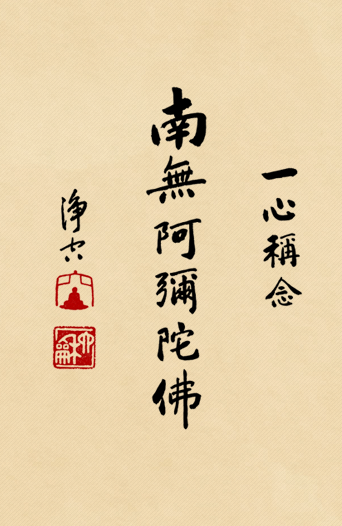 一心稱念
南無阿彌陀佛
淨宗